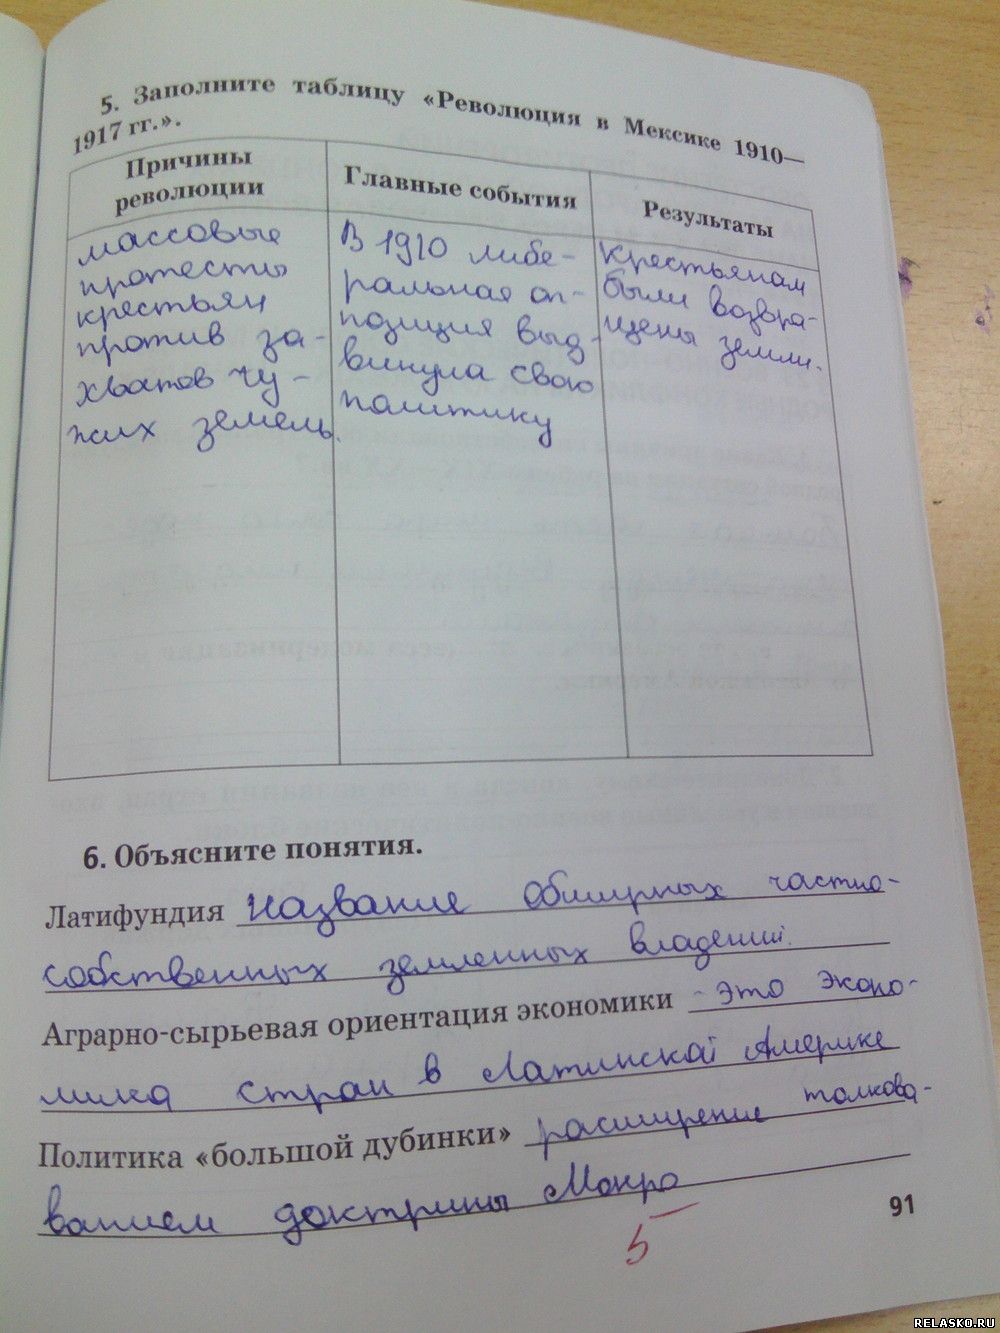 5. Заполните таблицу «Революция в Мексике 1910—
1917 гг.».
Причины
революции
массовые
протесты
крестьян
против за-
хватов чу-
жих земель.
Главные события
В 1910 либе-
ральная оп-
позиция выд-
винула свою
политику
Результаты
крестьянам
были возвра-
щены земли.
6. Объясните понятия.
Латифундия название обширных частно-
собственных земленных владений.
Аграрно-сырьевая ориентация экономики - это эконо-
мика стран в Латинской Америке
Политика «большой дубинки» расширение толкова-
ванием доктрины Монро
5
91
RELASKO.RU